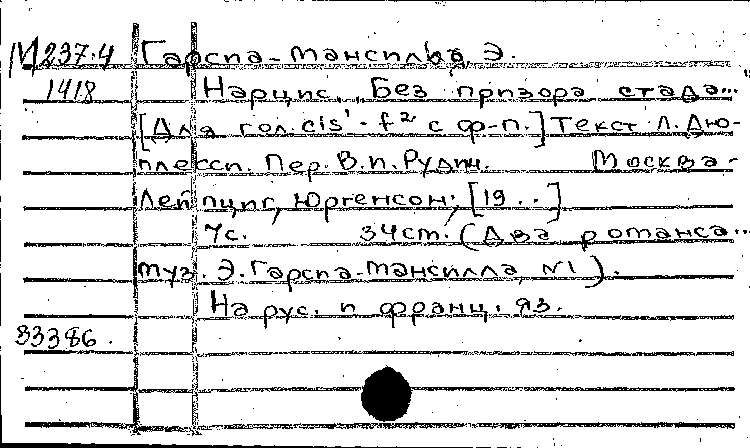 М237.4 Гарсиа-Мансилья, Э.
1418 Нарцис. „Без призора стада..."
[Для гол. cis¹-f² с ф-п.] Текст Л. Дю-
плесси. Пер. В.п. Рудин. Москва-
Лейпциг, Юргенсон; [19..]
7с. 34см. (Два романса...
муз. Э. Гарсиа-Мансилла, N1).
На рус. и франц. яз.
83386.